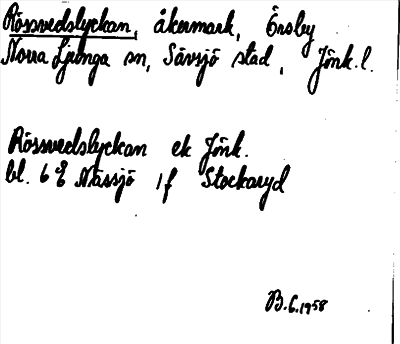 Rössvedslyckan, åkermark, Örsby
Norra Ljunga sn, Sävsjö stad, Jönk.l.
Rössvedslyckan ek Jönk.
bl. 6 Nässjö 1f Stockaryd
B.G.1958